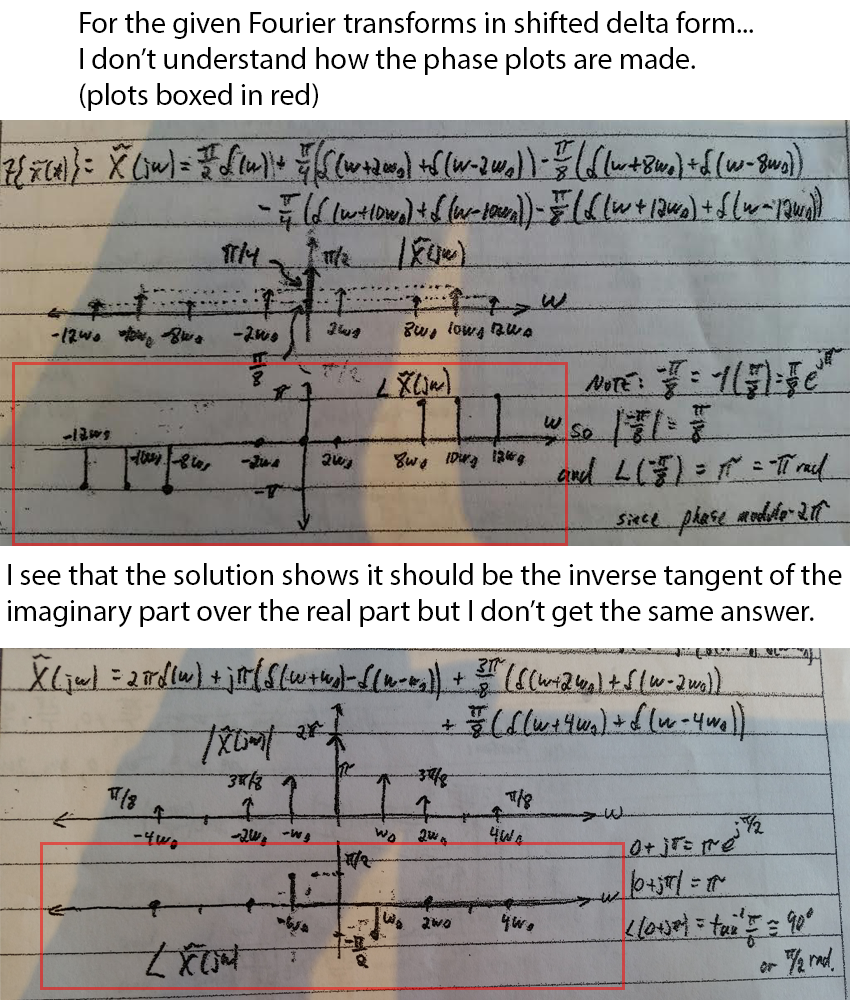 For the given Fourier transforms in shifted delta form...
I don't understand how the phase plots are made.
(plots boxed in red)
F{x̃(t)} = X̃(jw) = π/2 δ(w) + π/4 (δ(w+2w₀) + δ(w-2w₀)) - π/8 (δ(w+8w₀) + δ(w-8w₀))
- π/4 (δ(w+10w₀) + δ(w-10w₀)) - π/8 (δ(w+12w₀) + δ(w-12w₀))
π/4 π/2 |X̃(jw)|
w
-12w₀ -10w₀ -8w₀ -2w₀ 2w₀ 8w₀ 10w₀ 12w₀
π/8
π ∠X̃(jw) NOTE: -π/8 = -1(π/8) = π/8 e^jπ
-12w₀ w so |-π/8| = π/8
-10w₀ -8w₀ -2w₀ 2w₀ 8w₀ 10w₀ 12w₀ and ∠(-π/8) = π = -π rad
-π
since phase modulo-2π
I see that the solution shows it should be the inverse tangent of the
imaginary part over the real part but I don't get the same answer.
X̃(jw) = 2πδ(w) + jπ(δ(w+w₀) - δ(w-w₀)) + 3π/8 (δ(w+2w₀) + δ(w-2w₀))
+ π/8 (δ(w+4w₀) + δ(w-4w₀))
|X̃(jw)| 2π
π/8 3π/8 π 3π/8 π/8
w
-4w₀ -2w₀ -w₀ w₀ 2w₀ 4w₀
0+jπ = πe^jπ/2
π/2 |0+jπ| = π
w
-w₀ w₀ 2w₀ 4w₀ ∠(0+jπ) = tan⁻¹ π/0 = 90°
-π/2
∠X̃(jw) or π/2 rad.